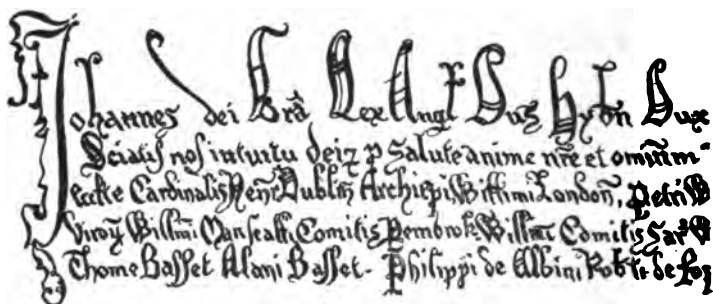 Johannes dei Grã Rex Angł Dūs hybñ Dux
Sciatis nos intuitu dei ⁊ p salute anime nr̃e et omñm
eccłe Cardinalis Henr̃ Dubliñ Archiep̃i Willimi London, Petri W
viroꝝ Willm̃i Marscalli Comitis Pembrok Willm̃i Comitis Sar̃ W
Thome Basset Alani Basset Philippi de Albini Rob̃ti de